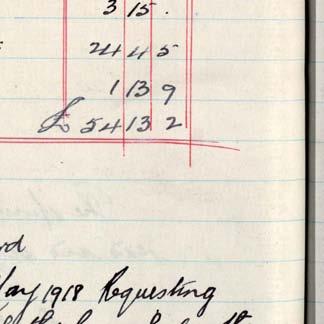 3 15 .
24 4 5
1 13 9
£ 54 13 2
rd
May 1918 Requesting